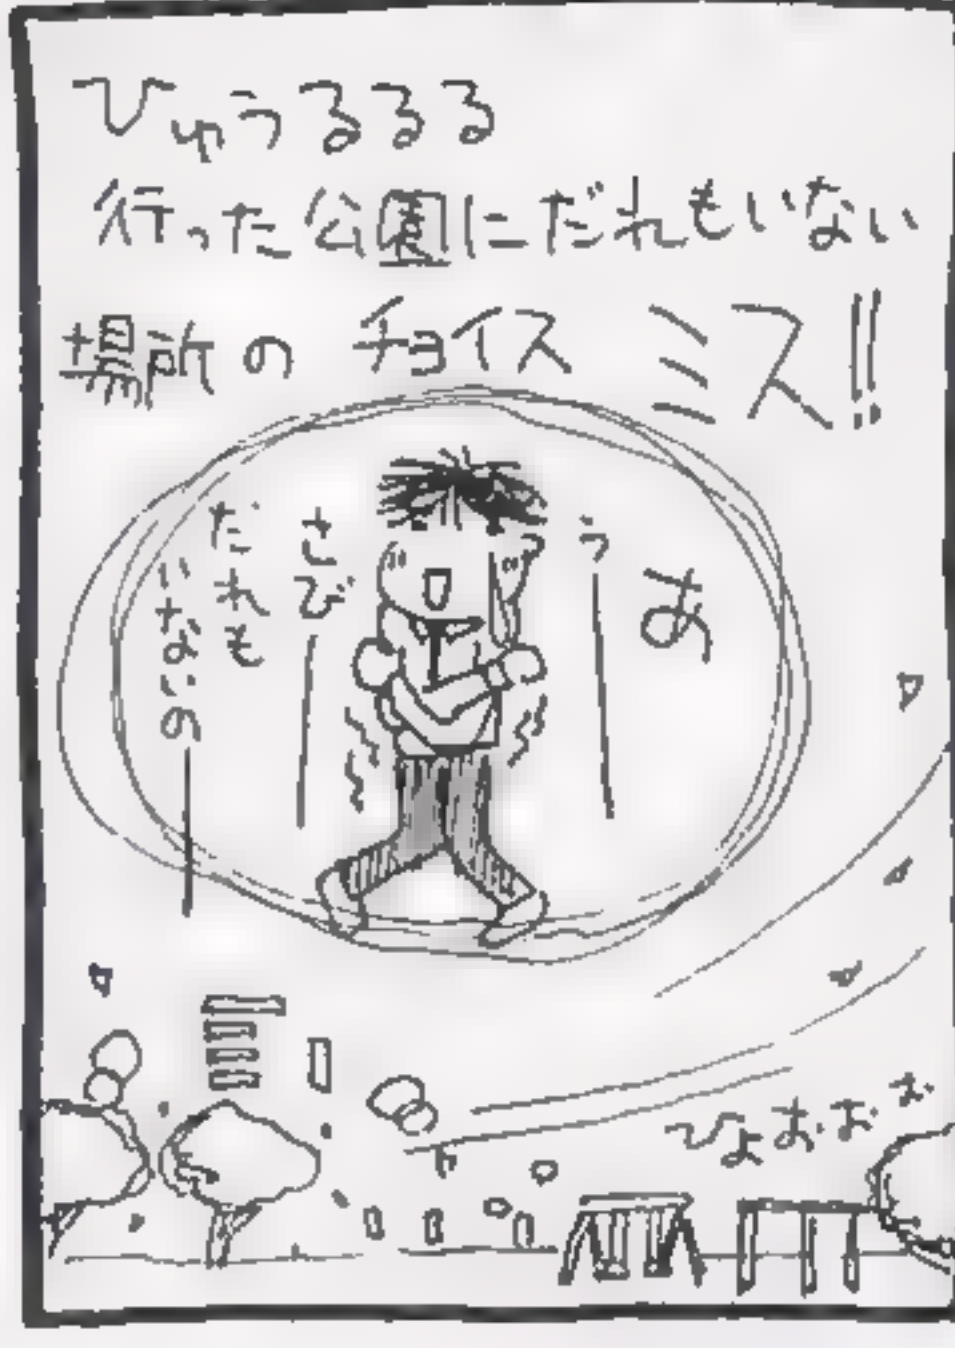 ひゅうるるる
行った公園にだれもいない
場所のチョイス ミス!!
お
う｜
さび｜
だれも
いないの｜
ひょおおお